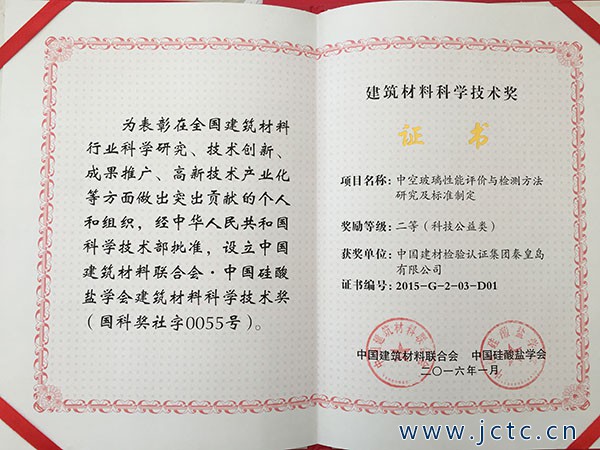 为表彰在全国建筑材料
行业科学研究、技术创新、
成果推广、高新技术产业化
等方面做出突出贡献的个人
和组织，经中华人民共和国
科学技术部批准，设立中国
建筑材料联合会·中国硅酸
盐学会建筑材料科学技术奖
（国科奖社字0055号）。
建筑材料科学技术奖
证书
项目名称：中空玻璃性能评价与检测方法
研究及标准制定
奖励等级：二等（科技公益类）
获奖单位：中国建材检验认证集团秦皇岛
有限公司
证书编号：2015-G-2-03-D01
中国建筑材料联合会 中国硅酸盐学会
二〇一六年一月
www.jctc.cn